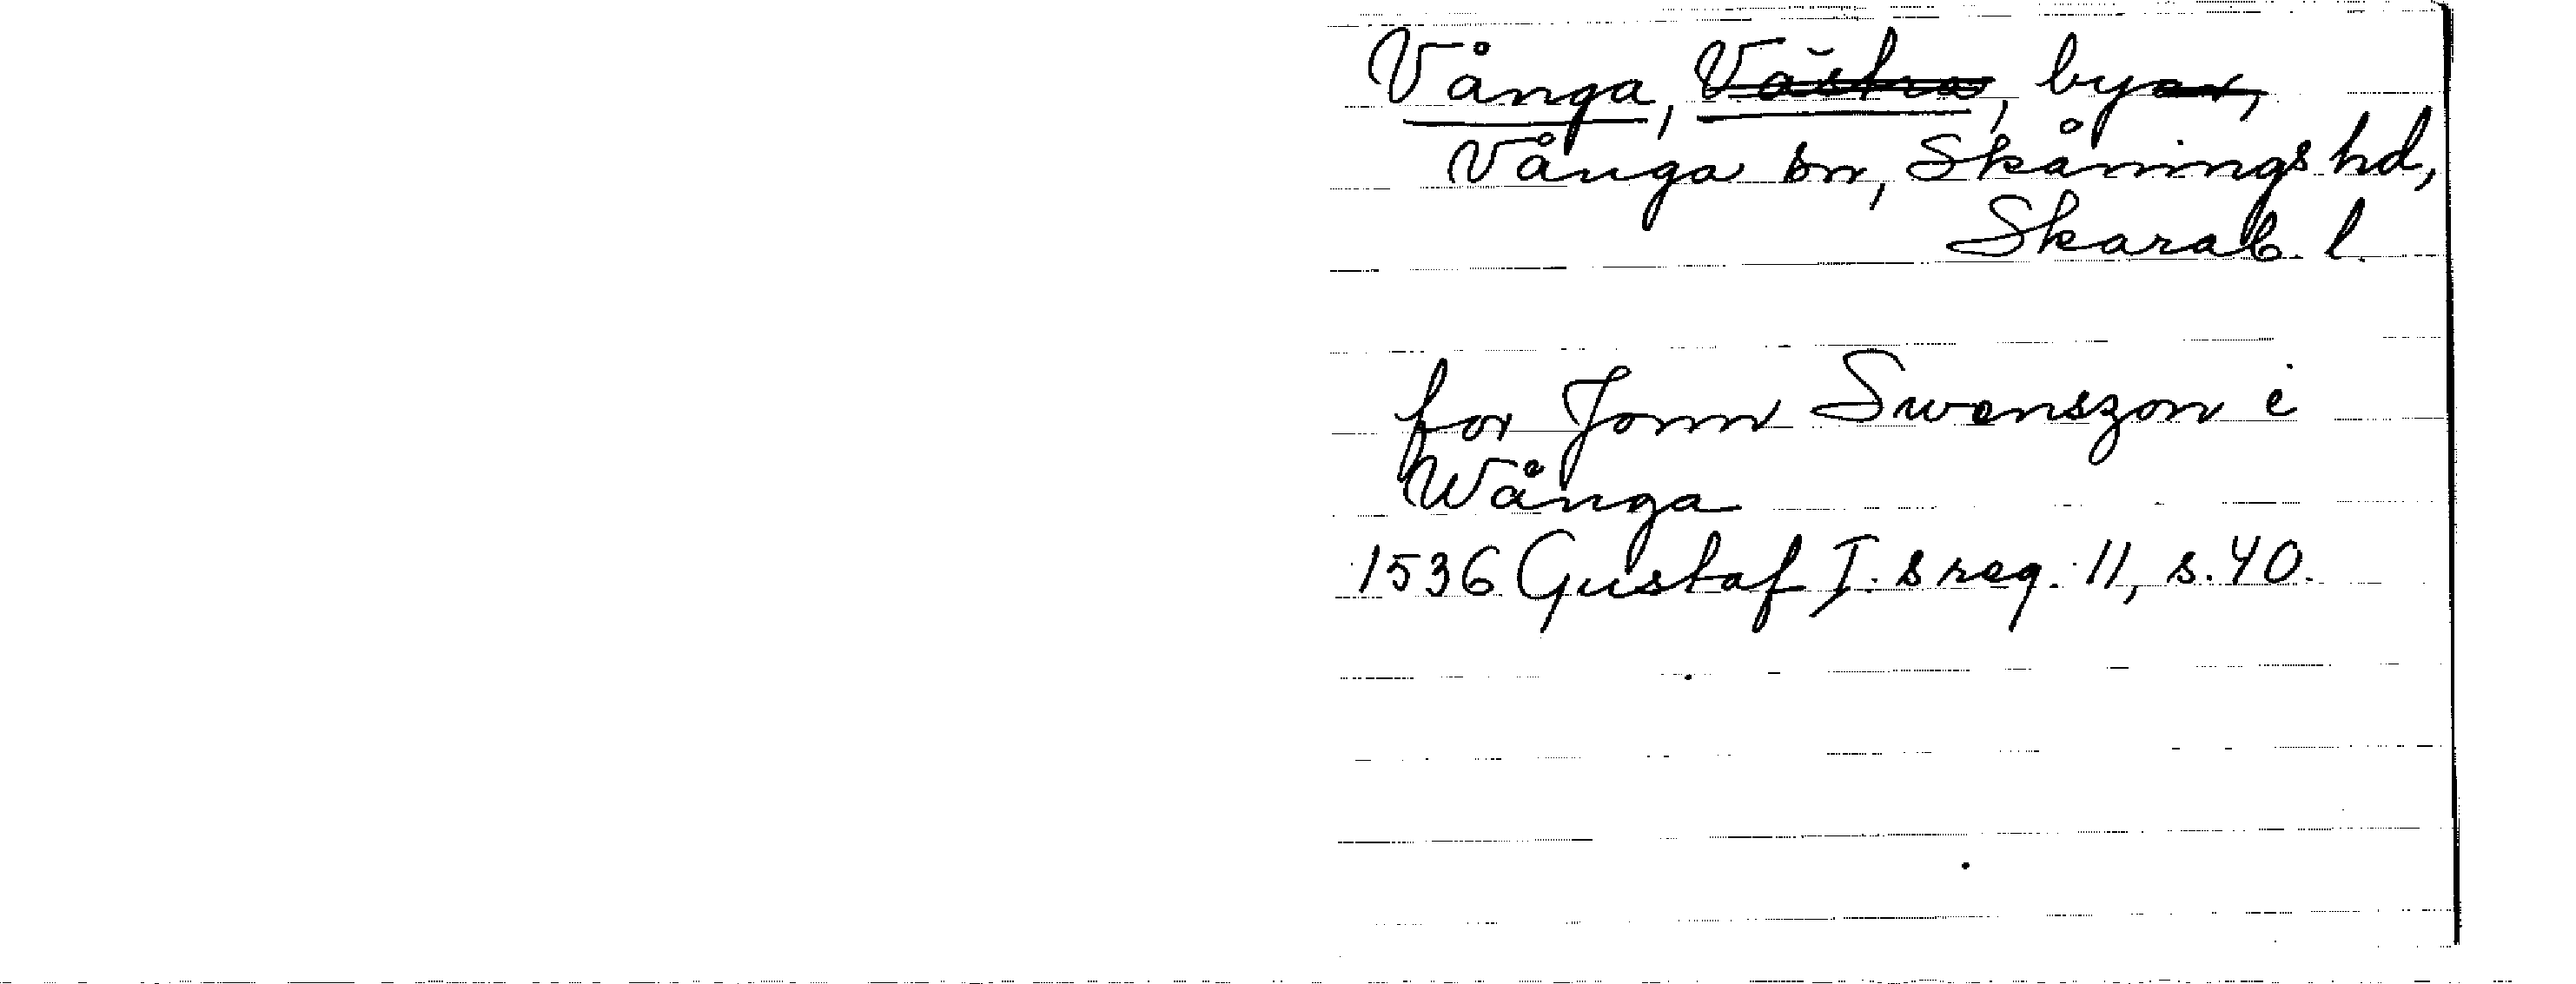 Vånga, Västra, byar,
Vånga sn, Skånings hd,
Skarab. l.
for Jonn Swenszon i
Wånga
1536 Gustaf I:s reg. 11, s. 40.